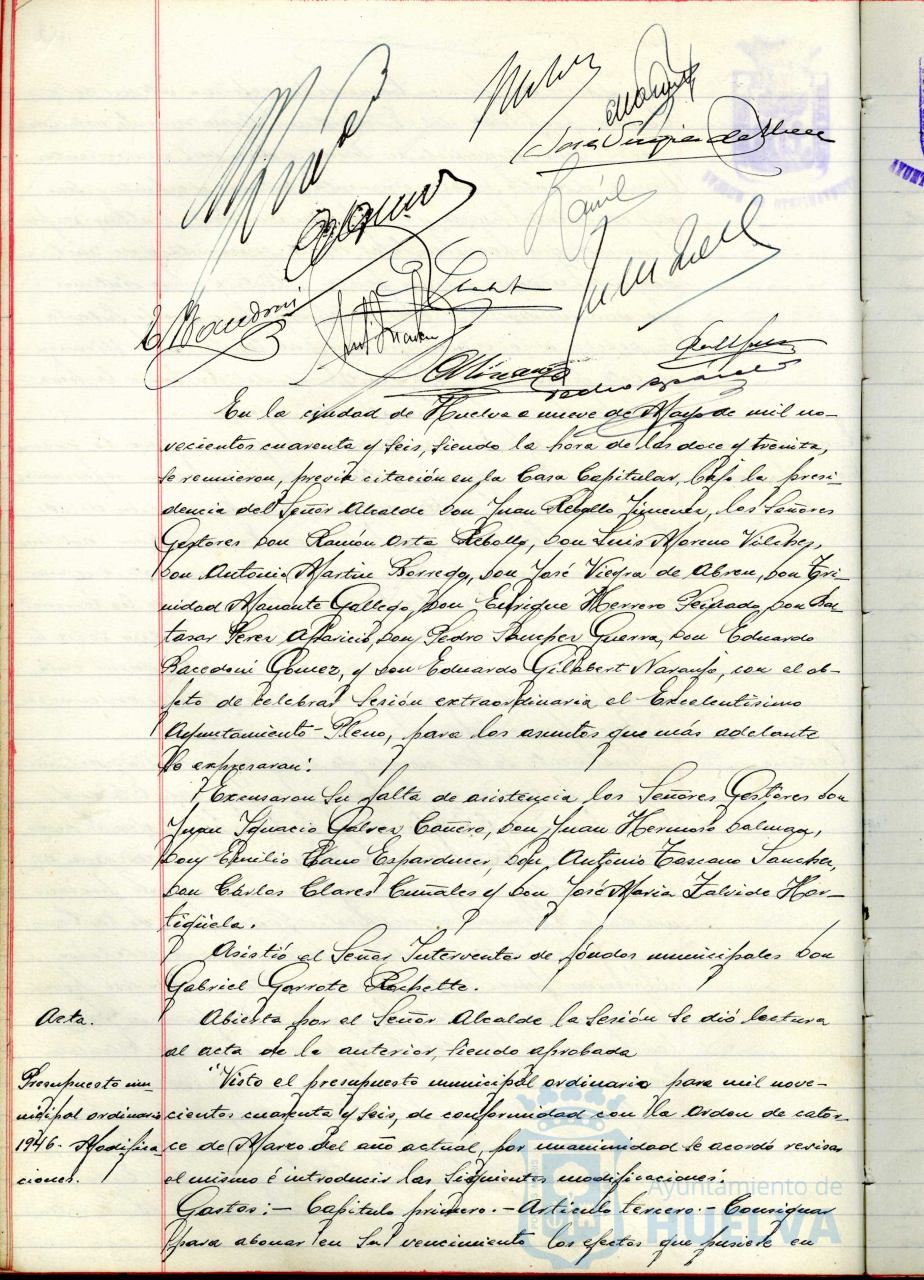 José Viegra de Abreu
E. Bacedoni
En la ciudad de Huelva a nueve de Mayo de mil no-
vecientos cuarenta y seis, siendo la hora de las doce y treinta,
se reunieron, previa citación en la Casa Capitular, bajo la presi-
dencia del Señor Alcalde Don Juan Rebollo Jimenez, los Señores
Gestores Don Ramón Orta Rebollo, Don Luis Moreno Vilchez,
Don Antonio Martin Borrego, Don José Viegra de Abreu, Don Tri-
nidad Manante Gallego, Don Enrique Herrero Peinado, Don Bal-
tasar Perez Aparicio, Don Pedro Sanchez Guerra, Don Eduardo
Bacedoni Gómez, y Don Eduardo Gilabert Naranjo, con el ob-
jeto de celebrar Sesión extraordinaria el Excelentísimo
Ayuntamiento-Pleno, para los asuntos que más adelante
se expresaran:
Excusaron su falta de asistencia los Señores Gestores Don
Juan Ignacio Galvez Cañero, Don Juan Hermoso
Don Emilio Cano Don Antonio Toscano Sanchez,
Don Carlos Clares y Don José Maria Zalvide Hor-
tigüela.
Asistió el Señor Interventor de fondos municipales Don
Gabriel Garrote
Acta.
Abierta por el Señor Alcalde la Sesión se dió lectura
al acta de la anterior, siendo aprobada
Presupuesto mu-
nicipal ordinario
1946. Modifica-
ciones.
"Visto el presupuesto municipal ordinario para mil nove-
cientos cuarenta y seis, de conformidad con la Orden de cator-
ce de Marzo del año actual, por unanimidad se acordó revisar
el mismo é introducir las siguientes modificaciones:
Gastos:- Capitulo primero.- Articulo tercero.- Consignar
para abonar en su vencimiento los efectos que pusiere en
Ayuntamiento de
HUELVA